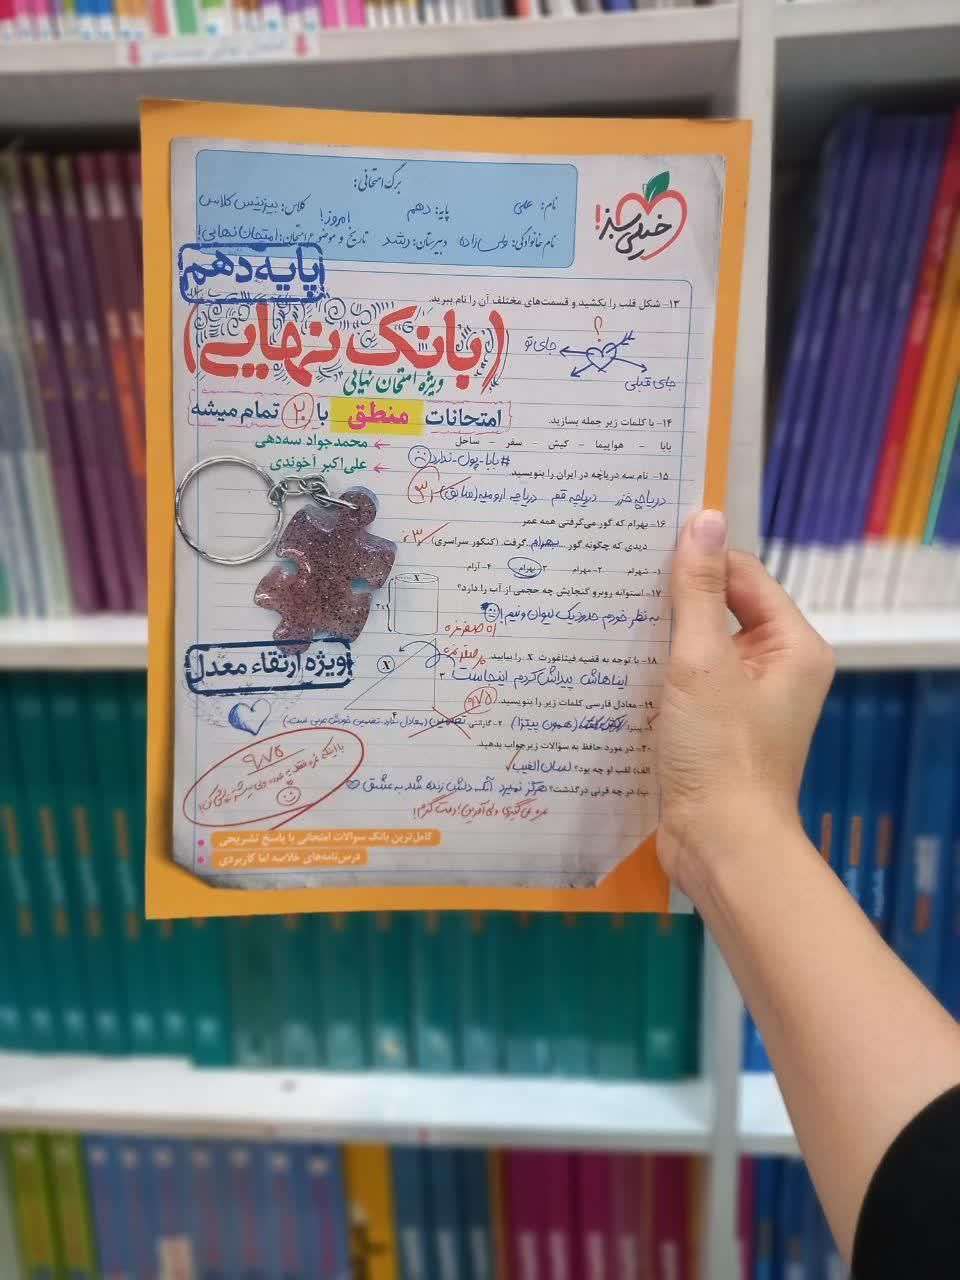 برگ امتحانی:
نام: علی
پایه: دهم
کلاس: بیزینس کلاس
نام خانوادگی: ولی‌زاده
دبیرستان: رشد
تاریخ و موضوع امتحان: امتحان نهایی!
امروز!
خیلی سبز!
پایه دهم
۱۳- شکل قلب را بکشید و قسمت‌های مختلف آن را نام ببرید.
؟
جای تو
جای قبلی
(بانک نهایی)
ویژه امتحان نهایی
امتحانات منطق با ۲۰ تمام میشه
محمدجواد سه‌دهی
علی‌اکبر آخوندی
۱۴- با کلمات زیر جمله بسازید.
بابا - هواپیما - کیش - سفر - ساحل
#بابا-پول-ندارد
۱۵- نام سه دریاچه در ایران را بنویسید.
دریاچه خزر دریاچه قم دریاچه ارومیه (سابق)
۱۶- بهرام که گور می‌گرفتی همه عمر
دیدی که چگونه گور بهرام گرفت. (کنکور سراسری)
۱- شهرام ۲- مهرام ۳- بهرام ۴- آرام
۱۷- استوانه روبرو گنجایش چه حجمی از آب را دارد؟
به نظر خودم حدود یک لیوان و نیم!
x
۱۸- با توجه به قضیه فیثاغورث x را بیابید.
ایناهاش پیداش کردم اینجاست
X
۳
۴
۱۹- معادل فارسی کلمات زیر را بنویسید.
۱- پیتزا: (همون پیتزا) ۲- گارانتی: تضمین (معادل ندارد. تضمین خودش عربی است.)
۲۰- در مورد حافظ به سؤالات زیر جواب بدهید.
الف) لقب او چه بود؟ لسان الغیب
ب) در چه قرنی درگذشت؟ هرگز نمیرد آنکه دلش زنده شد به عشق
نمره نمی‌گیری ولی آفرین! دمت گرم!
ویژه ارتقاء معدل
۹/۷۵
کامل‌ترین بانک سوالات امتحانی با پاسخ تشریحی
درس‌نامه‌های خلاصه اما کاربردی